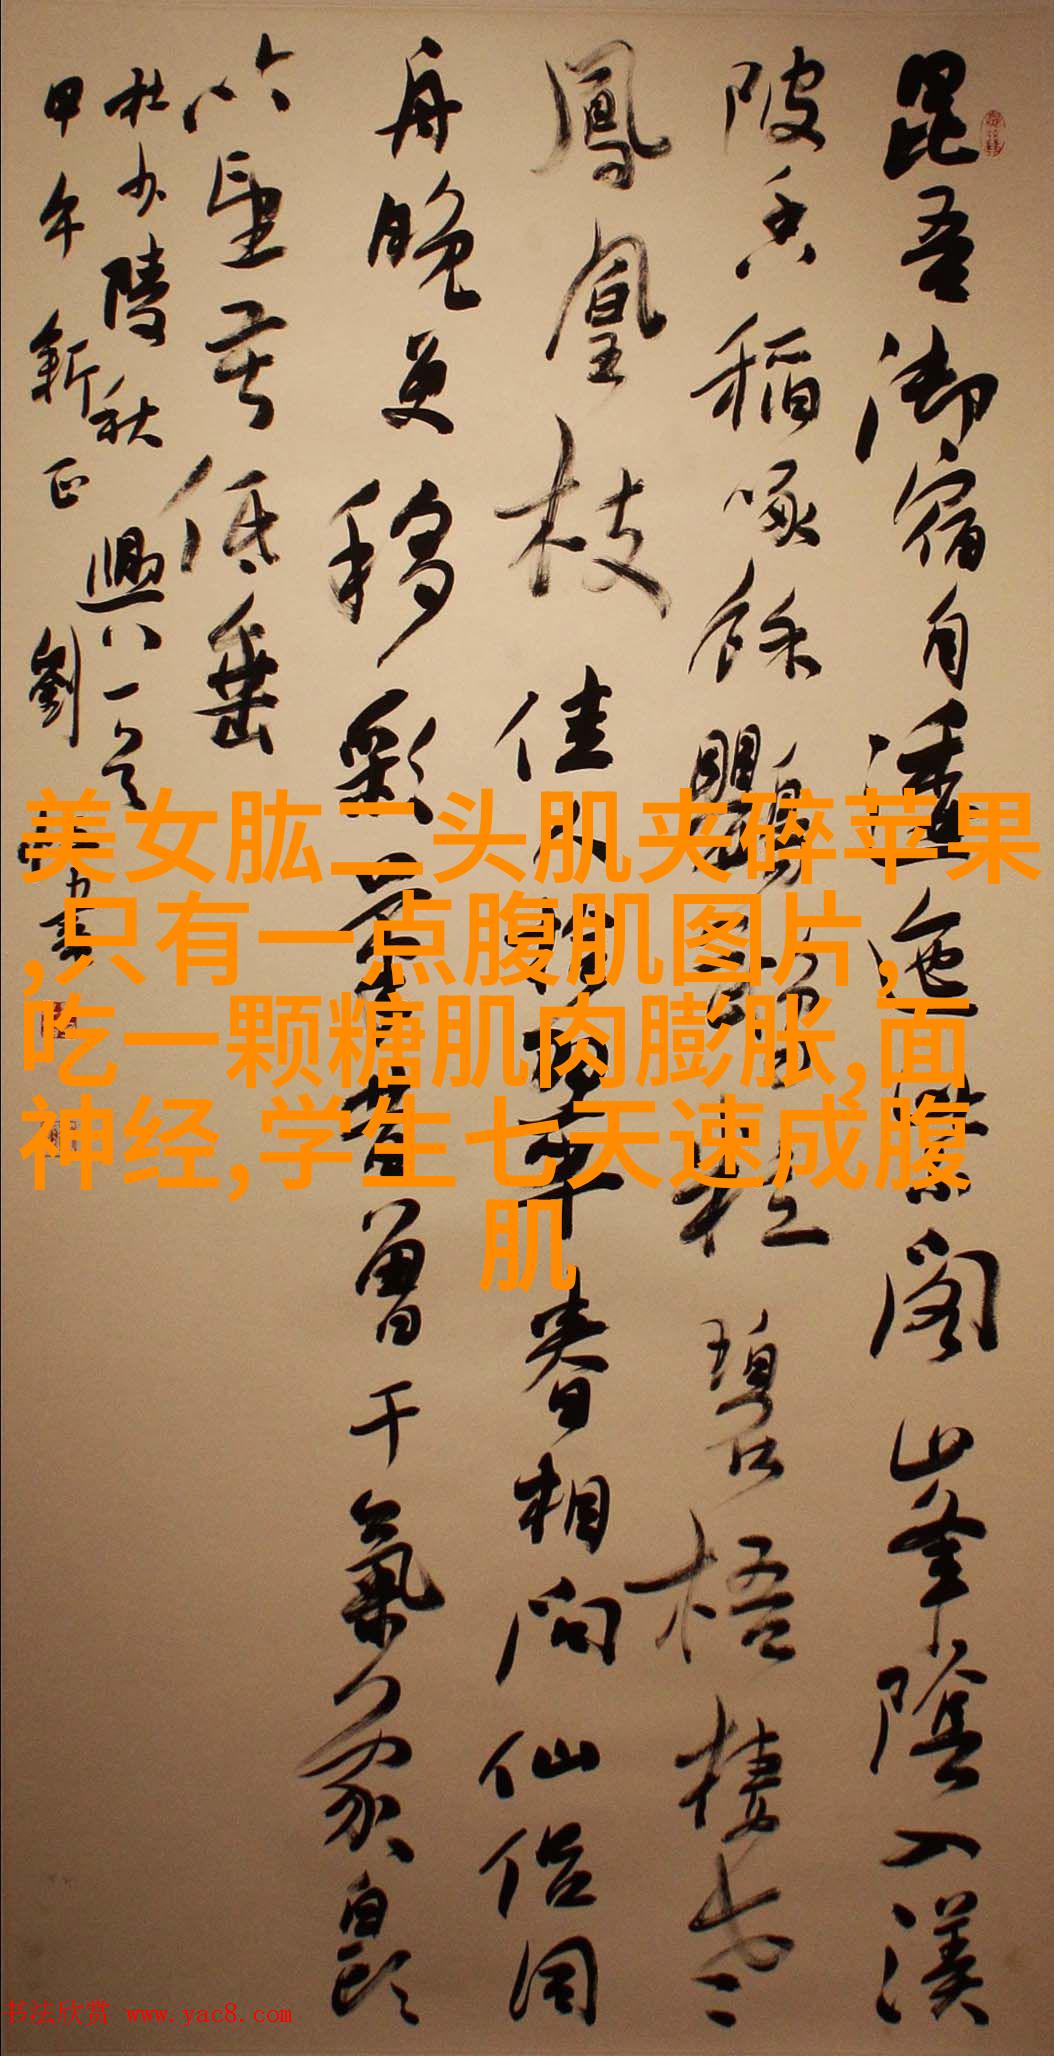 昆吾御宿自逶迤紫閣山峯陰入渼
陂香稻啄餘鸚鵡粒碧梧棲老
鳳凰枝佳人拾翠春相問仙侶同
舟晚更移彩筆昔曾干氣象白頭
吟望苦低垂
杜少陵秋興八一首
甲午新正劉書
美女肱二头肌夹碎苹果
,只有一点腹肌图片,
吃一颗糖肌肉膨胀,面
神经,学生七天速成腹
肌
书法欣赏 www.yac8.com